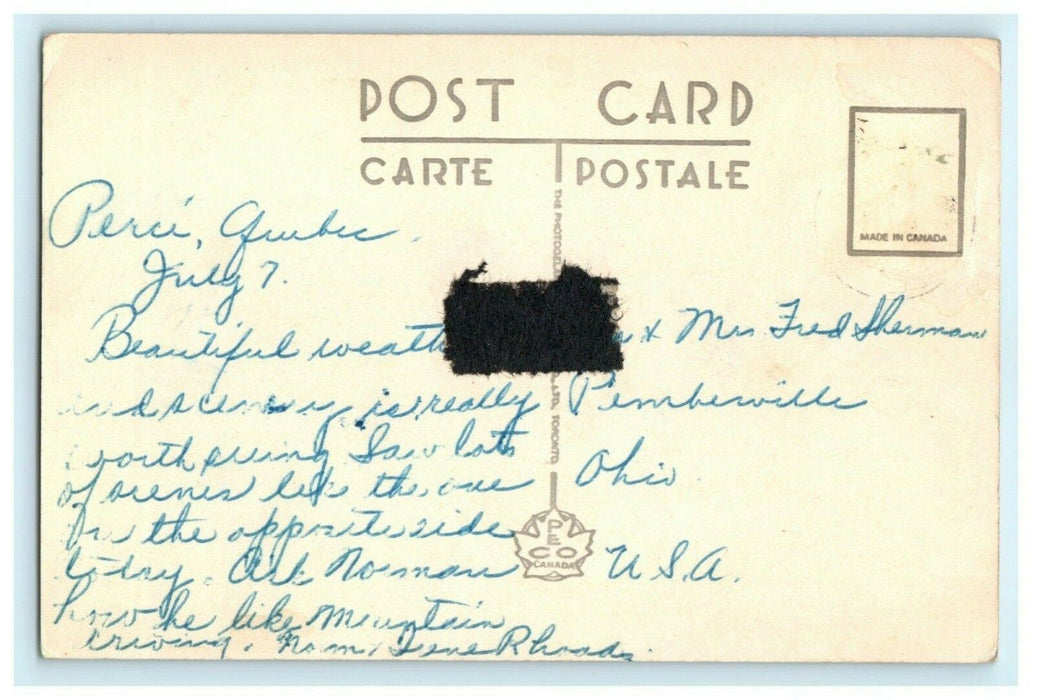 POST CARD
CARTE POSTALE
MADE IN CANADA
Percé, Quebec.
July 7.
Beautiful weath
and scenery is really
worth seeing Saw lots
of scenes like the one
on the opposite side
today. Ask Norman
how he like mountain
driving. Norm, Gene Rhoads.
THE PHOTOGEL
LTD. TORONTO
PECO
CANADA
& Mrs Fred Sherman
Pemberville
Ohio
U.S.A.